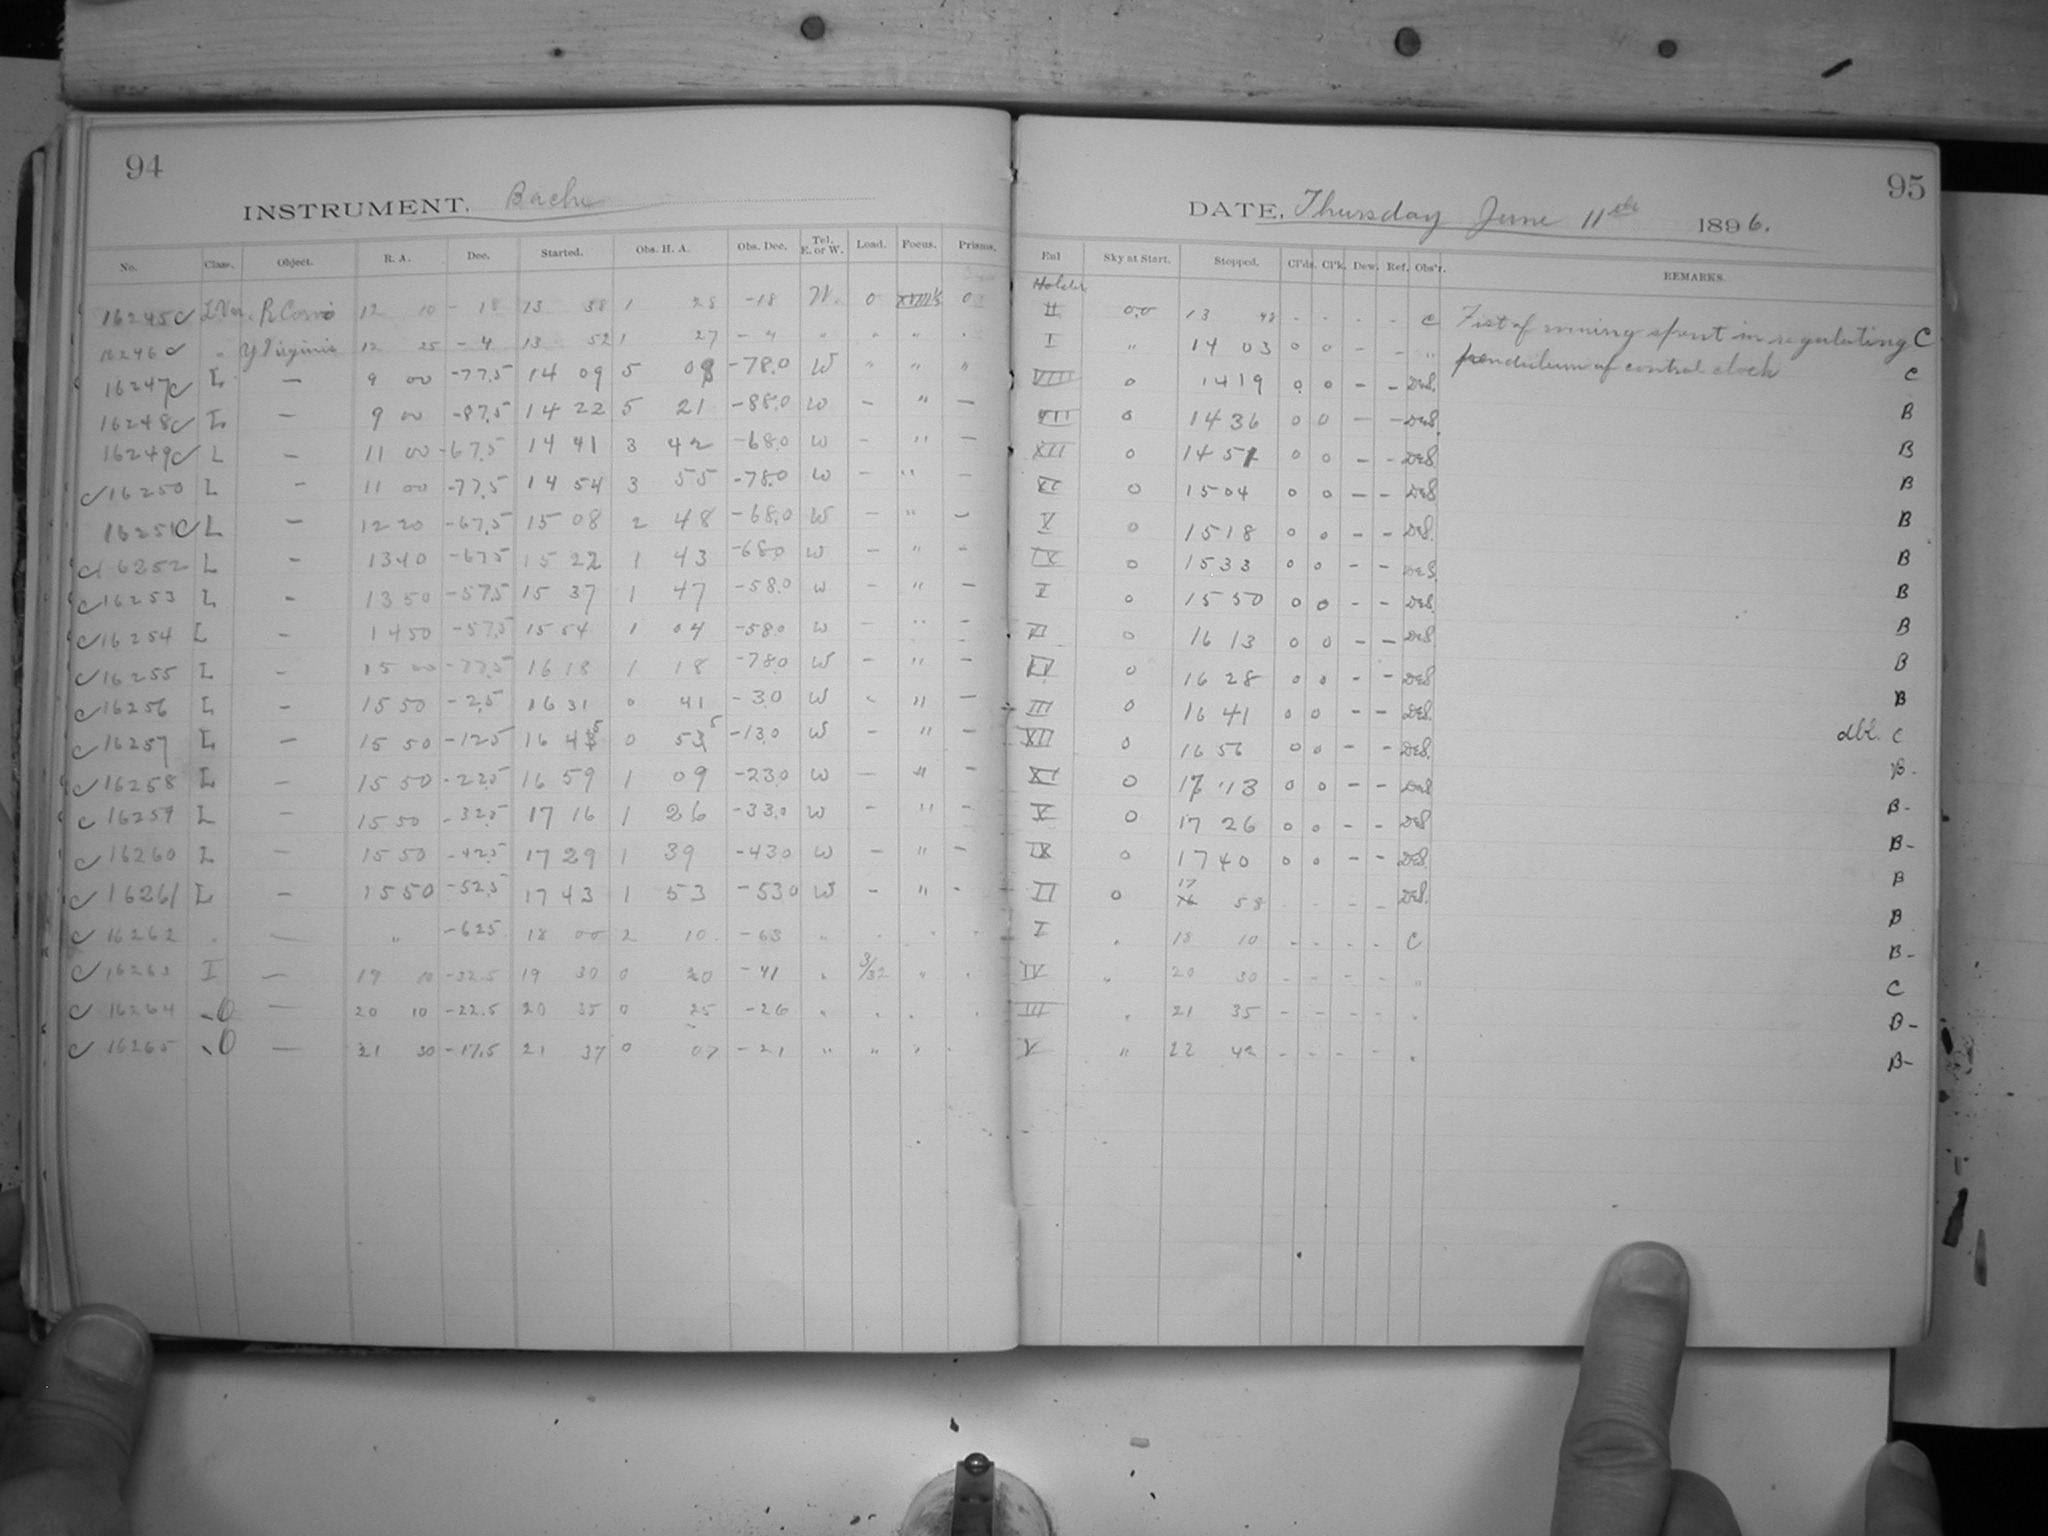 94
INSTRUMENT, Bache
No. Class. Object. R. A. Dec. Started. Obs. H. A. Obs. Dec. Tel. E. or W. Load. Focus. Prisms.
16245 C L.Var. R Corvi 12 10 - 18 13 38 1 28 -18 W. 0 0
16246 C " Y Virginis 12 25 - 4 13 52 1 27 - 4 " " "
16247 C L — 9 00 -77.5 14 09 5 08 -78.0 W " " "
16248 C L — 9 00 -87.5 14 22 5 21 -88.0 W - " —
16249 C L — 11 00 -67.5 14 41 3 42 -68.0 W - " -
C 16250 L - 11 00 -77.5 14 54 3 55 -78.0 W - " -
16251 C L — 12 20 -67.5 15 08 2 48 -68.0 W - " -
C 16252 L - 13 40 -67.5 15 22 1 43 -68.0 W - " -
C 16253 L - 13 50 -57.5 15 37 1 47 -58.0 W - " -
C 16254 L - 14 50 -57.5 15 54 1 04 -58.0 W - " -
C 16255 L - 15 00 -77.5 16 18 1 18 -78.0 W - " -
C 16256 L - 15 50 -2.5 16 31 0 41 -3.0 W - " —
C 16257 L — 15 50 -12.5 16 45 0 55 -13.0 W - " -
C 16258 L - 15 50 -22.5 16 59 1 09 -23.0 W — " -
C 16259 L - 15 50 -32.5 17 16 1 26 -33.0 W - " -
C 16260 L - 15 50 -42.5 17 29 1 39 -43.0 W - " -
C 16261 L - 15 50 -52.5 17 43 1 53 -53.0 W - " -
C 16262 " — " -62.5 18 00 2 10 -63 " " "
C 16263 I — 19 10 -32.5 19 30 0 20 -41 " 3/32 " "
C 16264 O — 20 10 -22.5 20 35 0 25 -26 " " " "
C 16265 O — 21 30 -17.5 21 37 0 07 -21 " " " "
95
DATE, Thursday June 11th 1896.
Sky at Start. Stopped. Cl'ds. Cl'k. Dew. Ref. Obs'r. REMARKS.
Holder
II 0.0 13 48 - - - - C First of evening spent in regulating C
I " 14 03 0 0 - - " pendulum of control clock
VIII 0 14 19 0 0 - - DeS. C
VII 0 14 36 0 0 - - DeS. B
XII 0 14 51 0 0 - - DeS. B
XI 0 15 04 0 0 - - DeS B
V 0 15 18 0 0 - - DeS. B
IX 0 15 33 0 0 - - DeS. B
V 0 15 50 0 0 - - DeS. B
VI 0 16 13 0 0 - - DeS B
0 16 28 0 0 - - DeS B
III 0 16 41 0 0 - - DeS. B
XII 0 16 56 0 0 - - DeS. dbl. C
XI 0 17 13 0 0 - - DeS B-
V 0 17 26 0 0 - - DeS B-
IX 0 17 40 0 0 - - DeS. B-
II 0 17 58 - - - - DeS. B
I " 18 10 - - - - C B
IV " 20 30 - - - - " B-
III " 21 35 - - - - " C
V " 22 42 - - - - " B-
B-